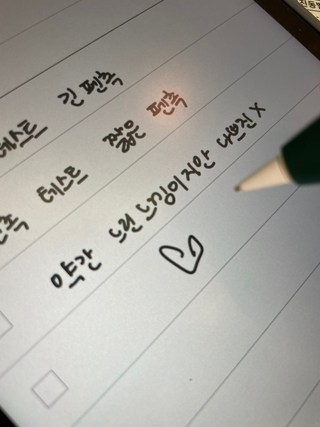 테스트 긴 펜촉
테스트 짧은 펜촉
약간 느린 느낌이지만 나쁘진 X